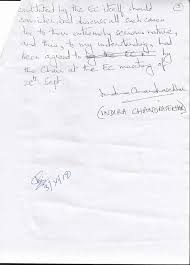 instituted by the EC itself should
consider and discuss all each cases
by to their extremely serious nature,
and this, to my understanding, had
been agreed to by the EC it by
the Chair at the EC meeting of
20th Sept.
Indira Chandrasekhar
(INDIRA CHANDRASEKHAR)